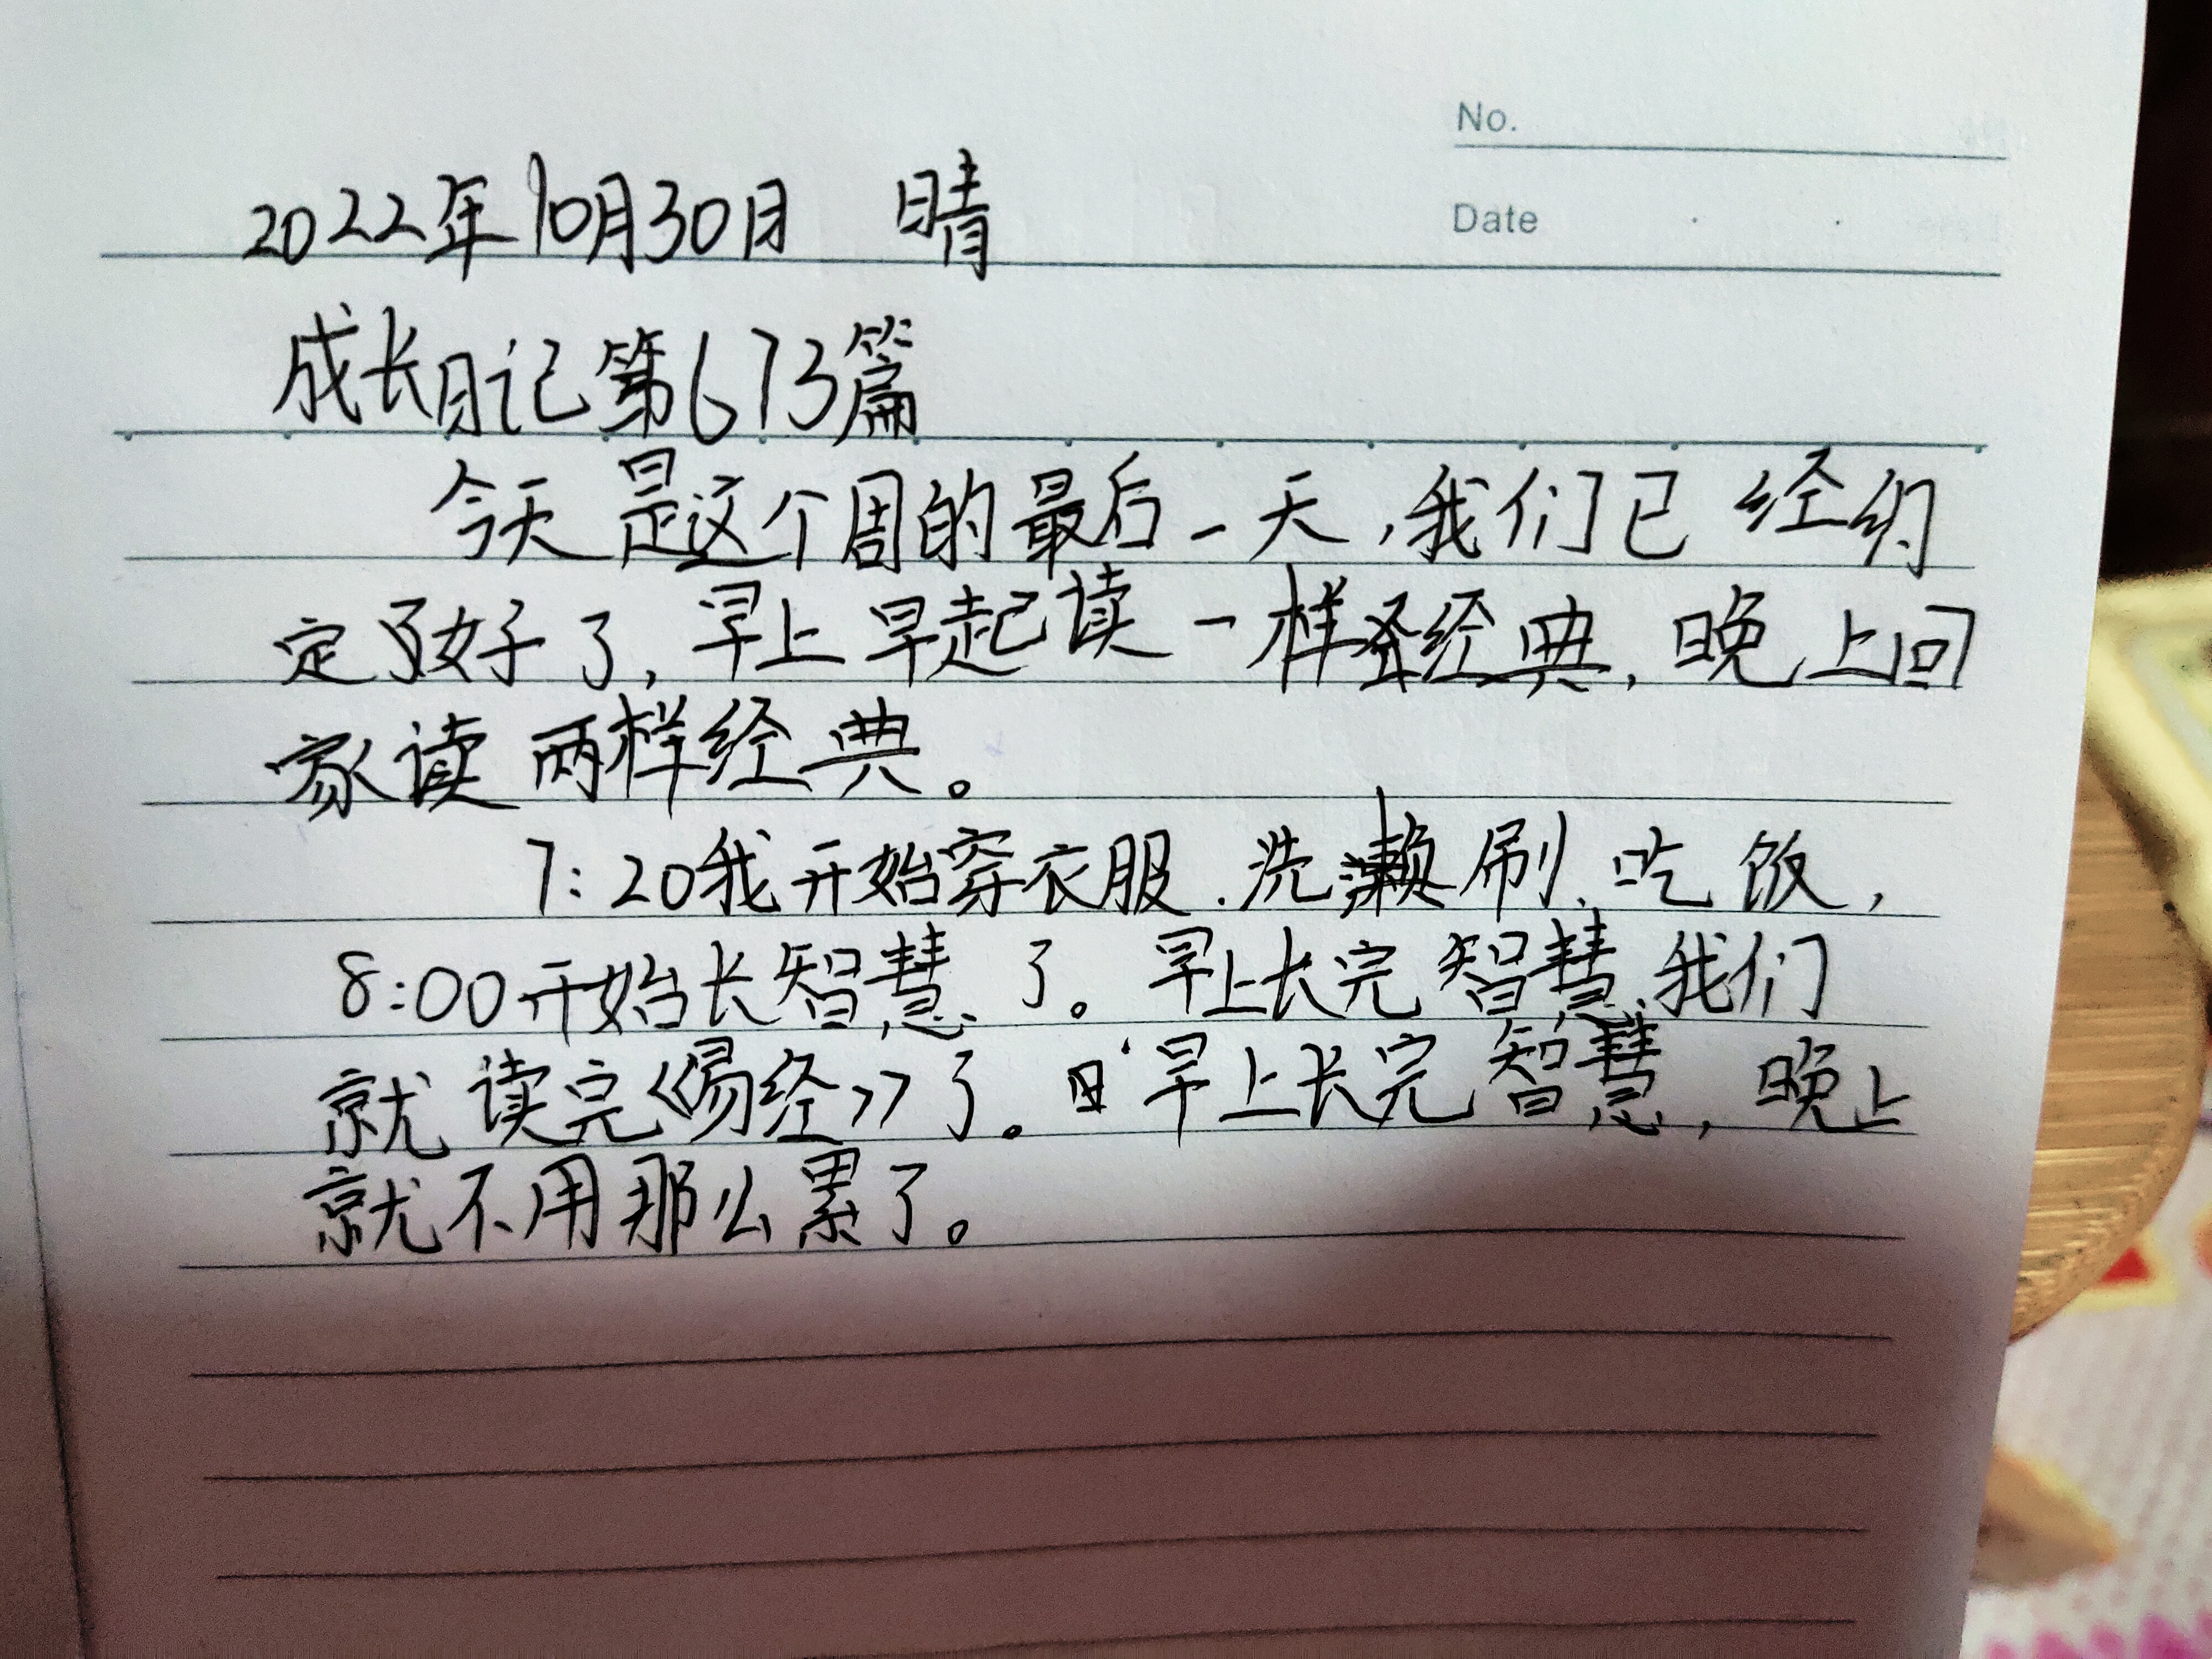 No.
Date
2022年10月30日 晴
成长日记第673篇
今天是这个周的最后一天,我们已经约
定了好了,早上早起读一样经典,晚上回
家读两样经典。
7:20我开始穿衣服.洗漱刷、吃饭,
8:00开始长智慧了。早上长完智慧,我们
就读完《易经》了。早上长完智慧,晚上
就不用那么累了。